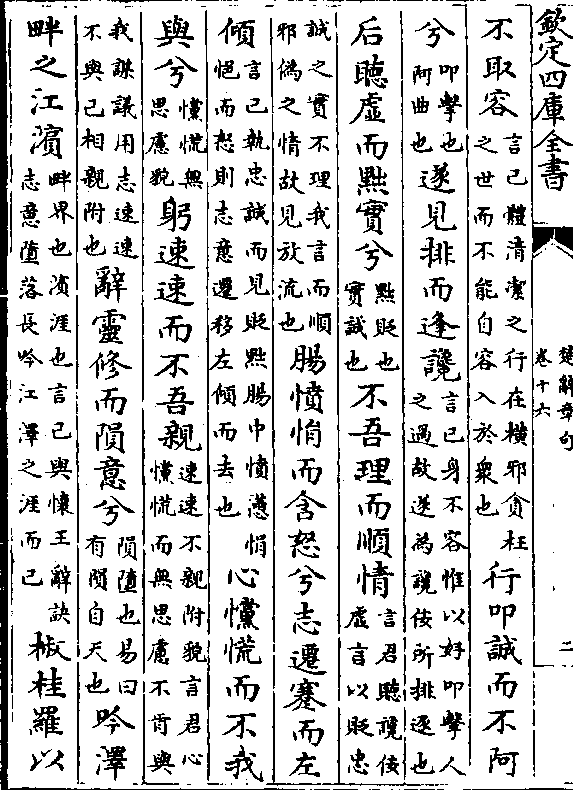 欽定四庫全書
楚辭章句
卷十六
二
不取容言己體清潔之行在橫邪貪枉之世而不能自容入於衆也行叩誠而不阿
兮叩擊也阿曲也遂見排而逢讒言己身不容惟以好叩擊人之過故遂為讒佞所排逐也
后聽虛而黜實兮黜貶也實誠也不吾理而順情言君聽讒佞虛言以貶忠
誠之實不理我言而順邪偽之情故見放流也腸憤悁而含怒兮志遷蹇而左
傾言己執忠誠而見貶黜腸中憤懣悁悒而怒則志意遷移左傾而去也心戃慌而不我
與兮戃慌無思慮貌躬速速而不吾親速速不親附貌言君心戃慌而無思慮不肯與
我謀議用志速速不與己相親附也辭靈修而隕意兮隕墮也易曰有隕自天也吟澤
畔之江濱畔界也濱涯也言己與懷王辭訣志意墮落長吟江澤之涯而已椒桂羅以